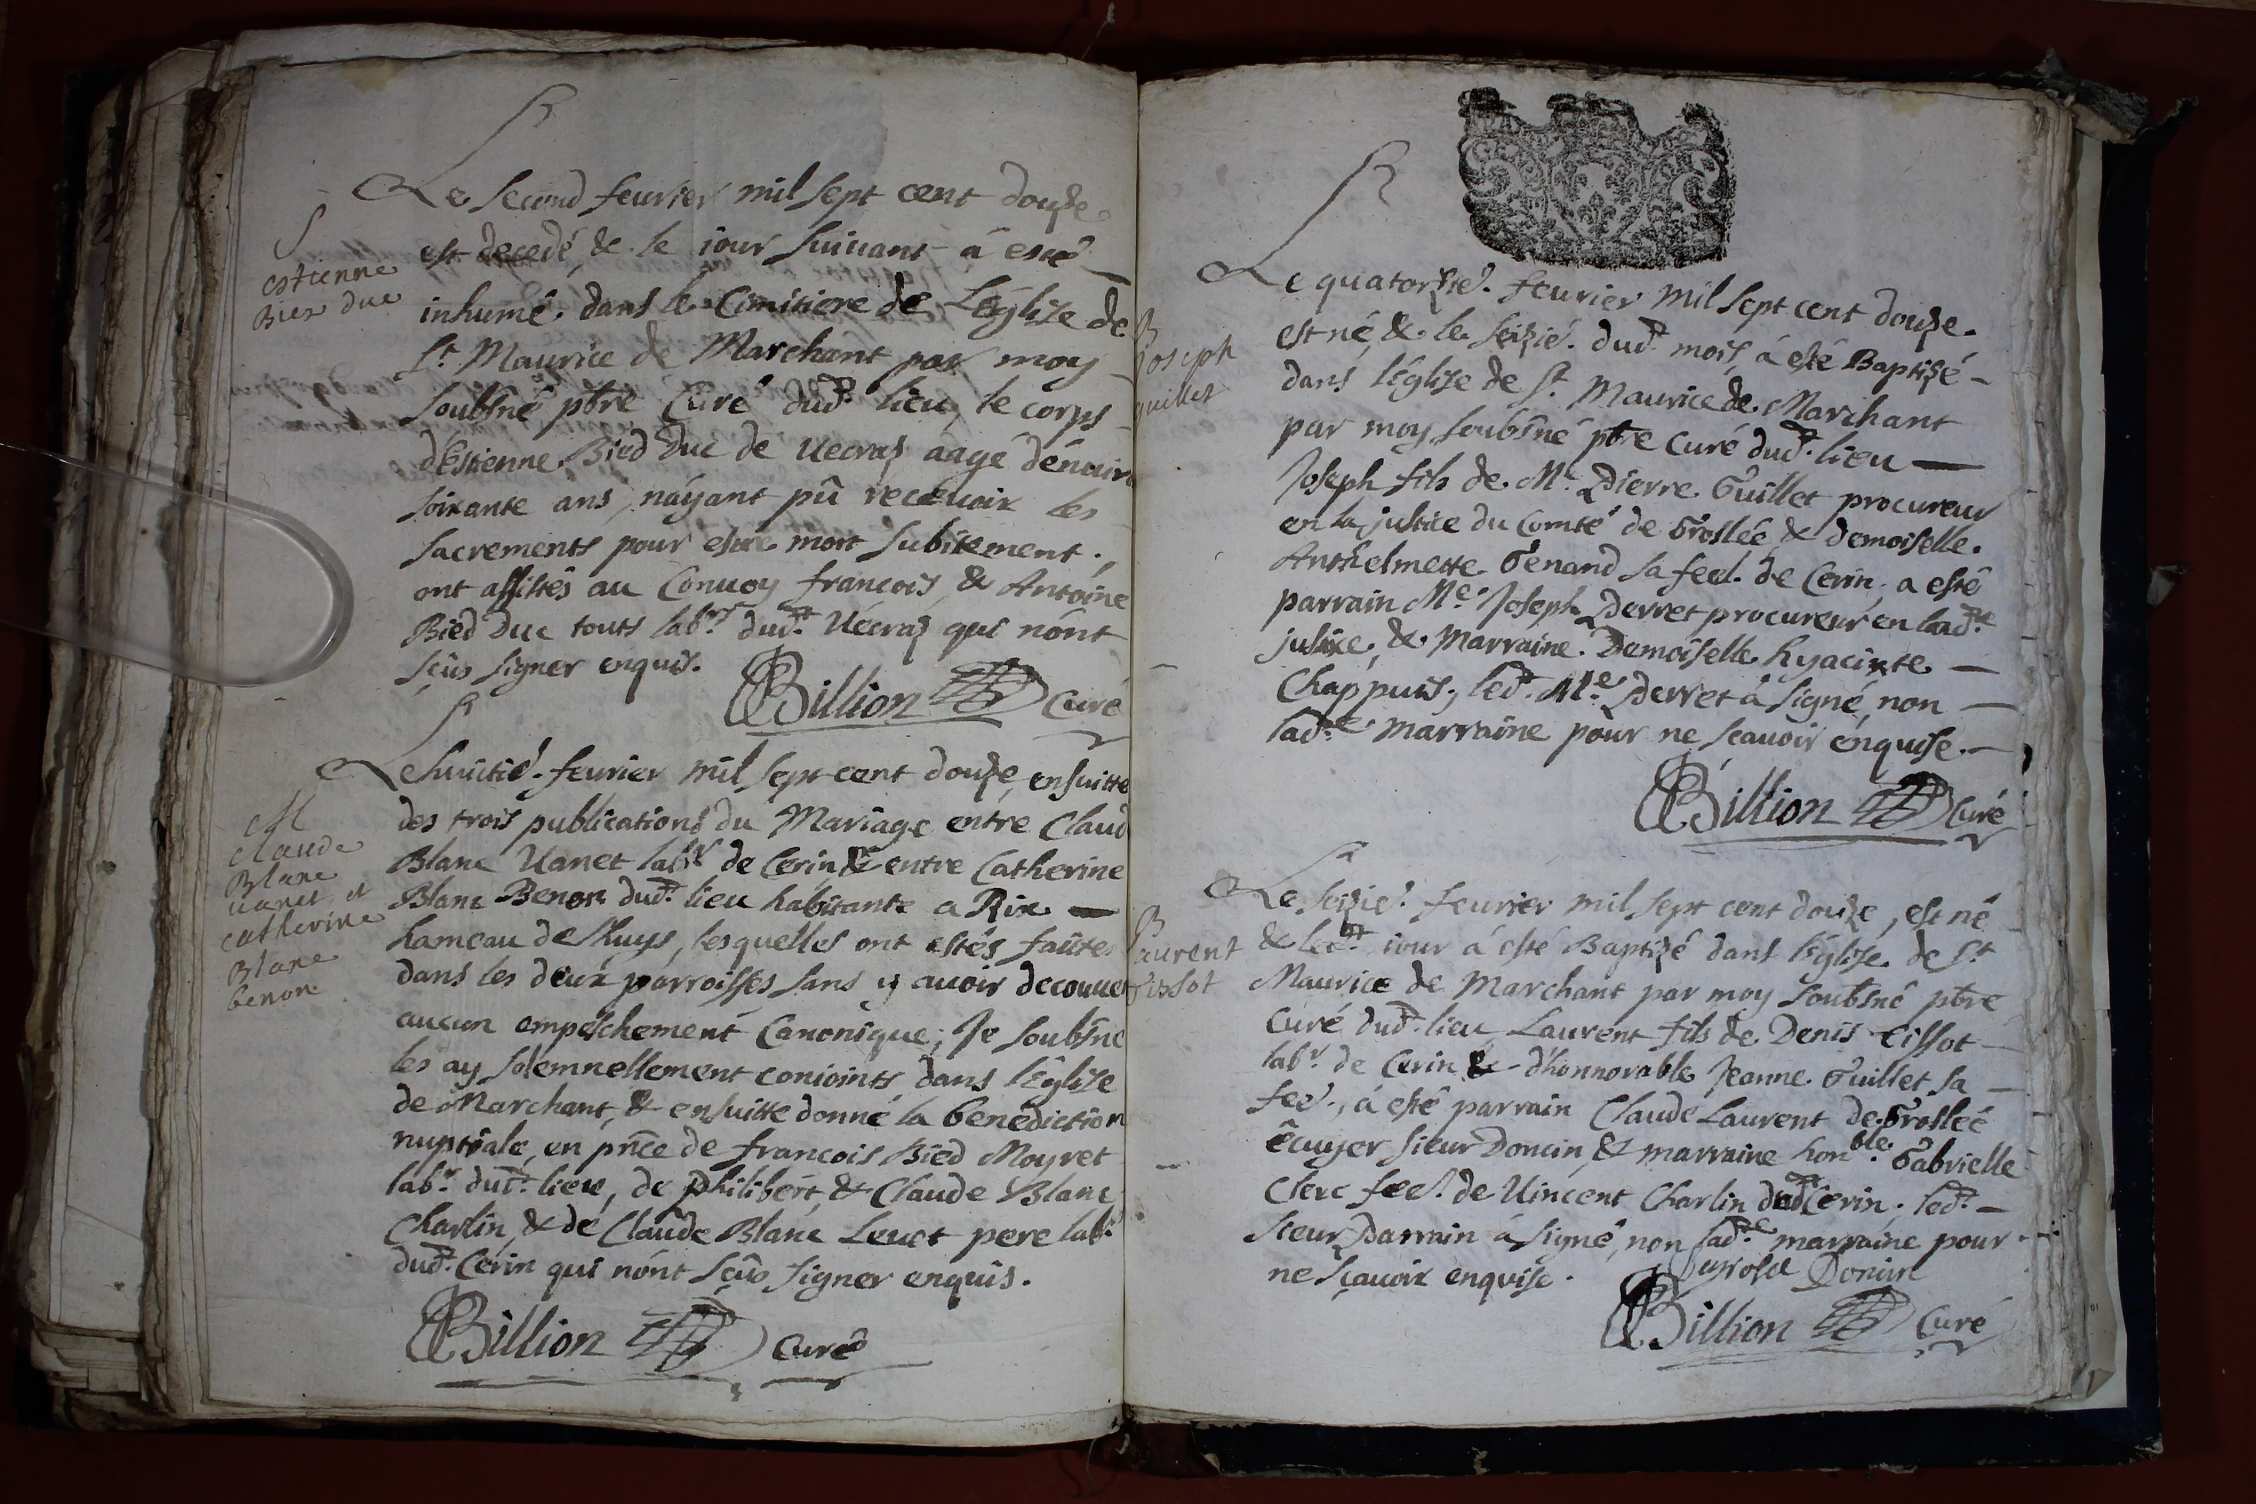 S
estienne
Bied duc
Le second feurier mil sept cent douze
est decedé, & le iour suiuant à esté
inhumé dans le Cimitiere de L'église de
St. Maurice de Marchant par moy
soubsné pbre Curé dud. lieu, le corps
d'Estienne Bied Duc de Uecraz aagé d'énuiro
soixante ans, n'ayant pû receuoir les
sacrements pour estre mort subitement,
ont assistés au Conuoy francois, & Antoine
Bied Duc touts labrs dudt. Uécraz qui n'ont
sçûs signer enquis.
Billion Curé
M
Claude
Blanc
uanet et
catherine
Blanc
benon
Le huitié. feurier mil sept cent douze, ensuitte
des trois publications du Mariage entre Claud
Blanc Uanet labr de Cerin & entre Catherine
Blanc Benon dud. lieu habitante a Rix
hameau de lhuys, lesquelles ont estés faites
dans les deux parroisses sans y auoir decouuert
aucun empeschement Canonique; Je soubsné
les ay solemnellement conioints dans l'Eglise
de Marchant, & ensuitte donné la benediction
nuptiale, en pnce de francois Bied Moyret
labr. dudt. lieu, de philibert, & Claude Blanc
Charlin, & de Claude Blanc Leuet pere labrs
dudt. Cerin qui n'ont sçûs signer enquis.
Billion Curé
B
Joseph
guillet
Le quatorzié. feurier mil sept cent douze
est né, & le seizié. dud. mois, à esté Baptizé
dans l'église de St. Maurice de Marchant
par moy soubsné pbre Curé dud. lieu
Joseph fils de Me. Pierre Guillet procureur
en la justice du Comté de Groslée & demoiselle
Anthelmette Genand sa feé. de Cerin, a esté
parrain Me. Joseph Perret procureur en lad.te
justice, & Marraine Demoiselle hyacinte
Chappuis, led. Me. Perret à signé, non
lad.te marraine pour ne sçauoir enquise.
Billion Curé
B
Laurent
tissot
Le seizié. feurier mil sept cent douze, est né
& ledt. iour à esté Baptizé dans l'église de St.
Maurice de Marchant par moy soubsné pbre
Curé dud. lieu Laurent fils de Denis tissot
labr. de Cerin & d'honnorable Jeanne Guillet sa
feé., à esté parrain Claude Laurent de Groslée
écuyer sieur Doncin, & marraine honble. Gabrielle
Clerc feé. de Uincent Charlin dud Cerin, led.
sieur Parrain à signé, non lad.te marraine pour
ne sçauoir enquise.
Billion Curé